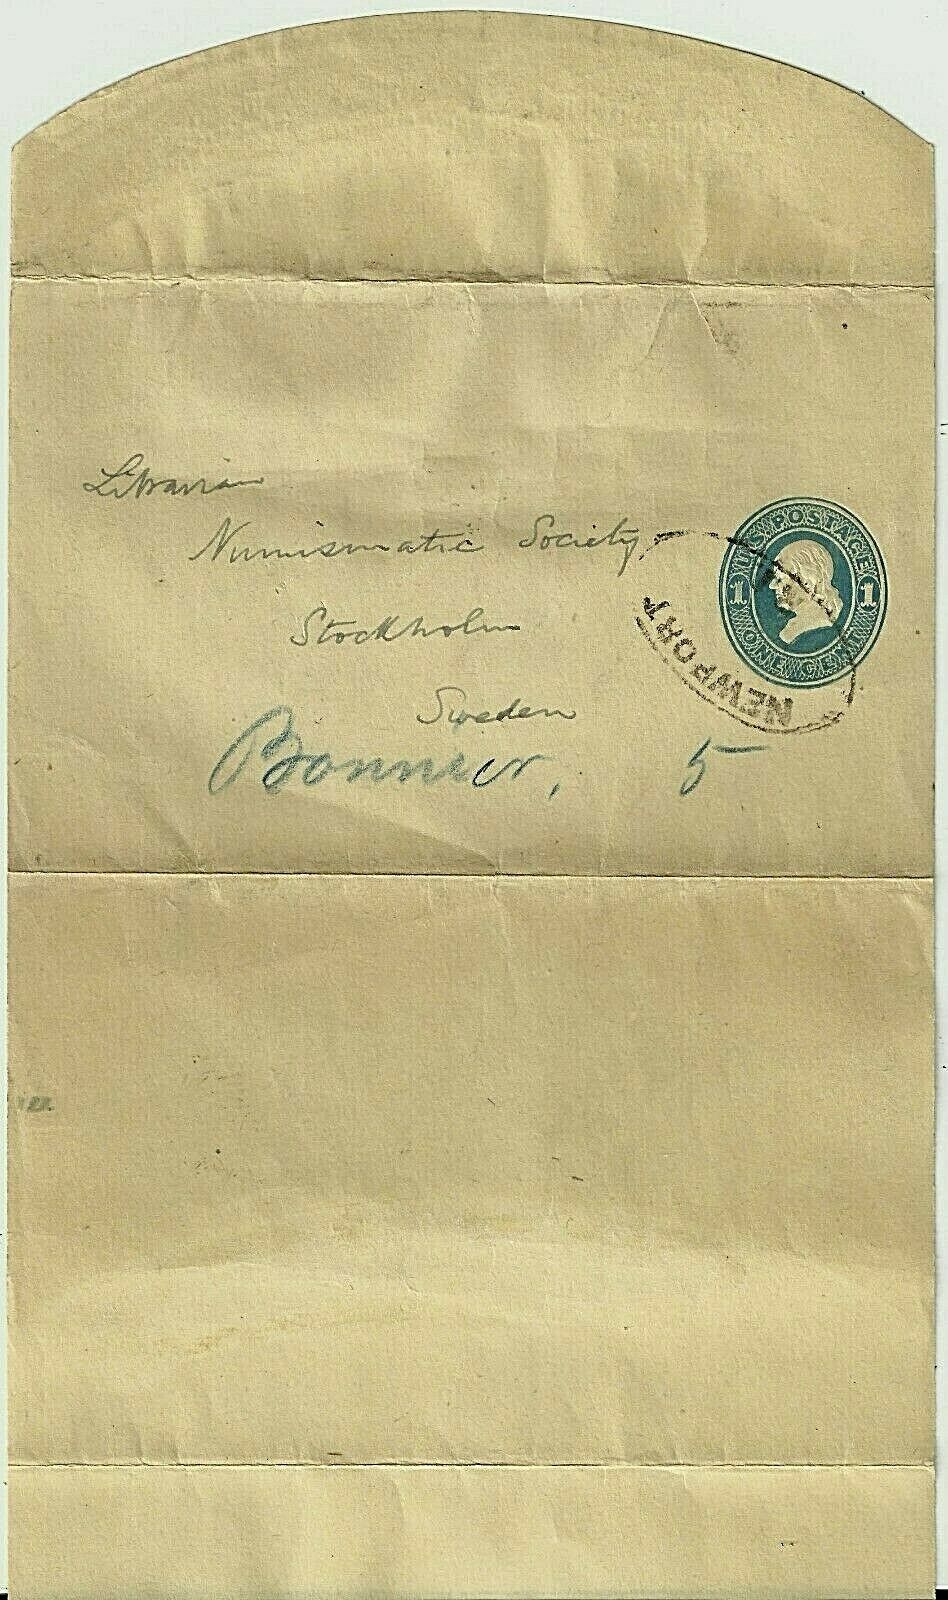 Librarian
Numismatic Society
Stockholm
Sweden
Bonnier, 5
U.S. POSTAGE
1 1
ONE CENT
NEWPORT
R.I.